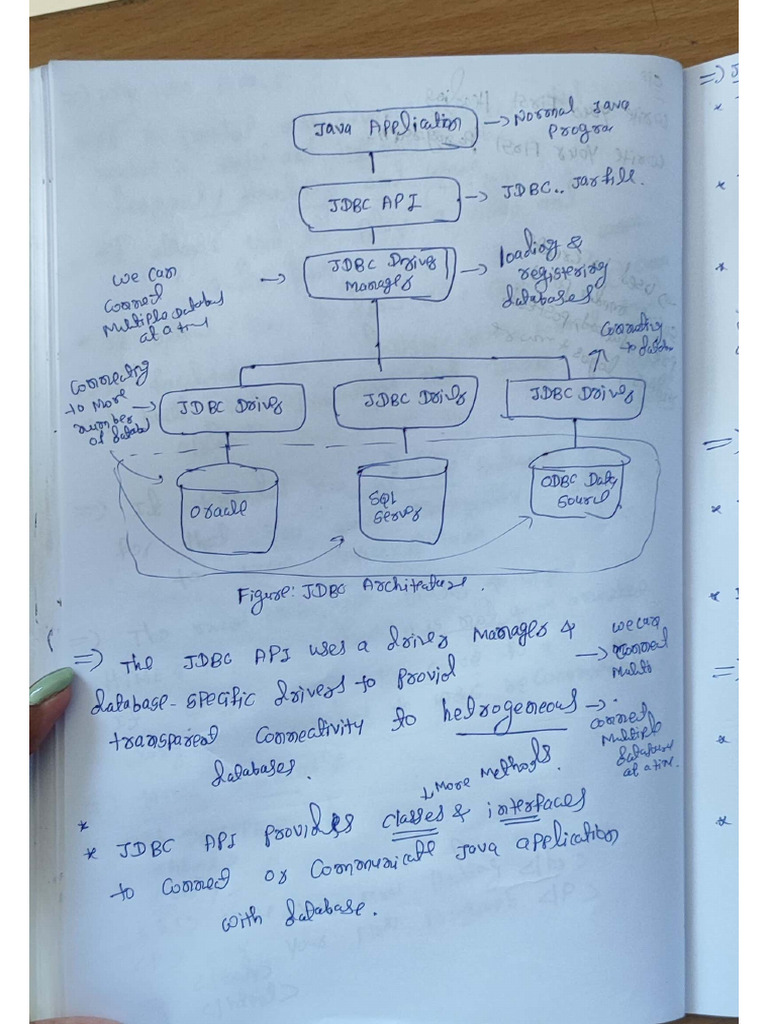 Java Application
→ Normal Java
Progra
JDBC API
→ JDBC.. Jar file.
JDBC Driver
Manager
→ loading &
registering
databases
we can
connect
Multiple databas
at a time
connecting
to datab
connecting
to More
number
of databas
JDBC Driver
JDBC Driver
JDBC Driver
Oracle
SQL
Server
ODBC Data
Source
Figure: JDBC Architecture.
=> The JDBC API uses a driver Manager &
database-specific drivers to provid
transparent connectivity to hetrogeneous
databases.
→ we can
connect
Multi
→ connect
Multiple
databases
at a time.
↓ More Methods.
*
* JDBC API provides classes & interfaces
to connect or communicate Java application
with database.
=> J
*
*
*
=>
*
*
=>
*
*